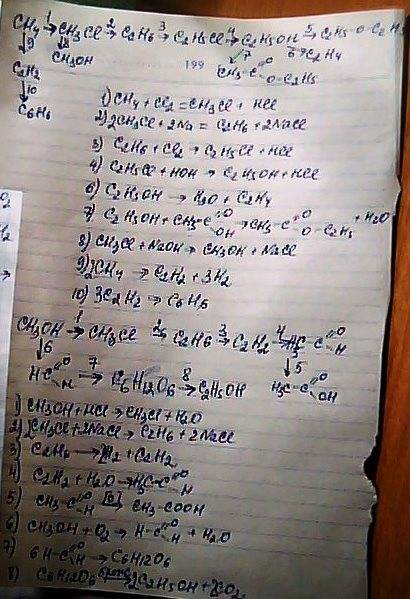 CH4 →1 CH3Cl →2 C2H6 →3 C2H5Cl →4 C2H5OH →5 C2H5-O-C2H5
↓9 ↓8 ↓7 6→ C2H4
CH3OH
C2H2 199 CH3-C=O
O-C2H5
↓10
C6H6
1) CH4 + Cl2 = CH3Cl + HCl
2) 2CH3Cl + 2Na = C2H6 + 2NaCl
3) C2H6 + Cl2 → C2H5Cl + HCl
4) C2H5Cl + HOH → C2H5OH + HCl
6) C2H5OH → H2O + C2H4
7) C2H5OH + CH3-C=O OH → CH3-C=O O-C2H5 + H2O
8) CH3Cl + NaOH → CH3OH + NaCl
9) 2CH4 → C2H2 + 3H2
10) 3C2H2 → C6H6
CH3OH →1 CH3Cl →2 C2H6 →3 C2H2 →4 H3C-C=O H
↓6 ↓5
H-C=O H →7 C6H12O6 →8 C2H5OH H3C-C=O OH
1) CH3OH + HCl → CH3Cl + H2O
2) 2CH3Cl + 2NaCl → C2H6 + 2NaCl
3) C2H6 → 2H2 + C2H2
4) C2H2 + H2O → H3C-C=O H
5) CH3-C=O H [O]→ CH3-COOH
6) CH3OH + O2 → H-C=O H + H2O
7) 6H-C=O H → C6H12O6
8) C6H12O6 → 2C2H5OH + 2CO2